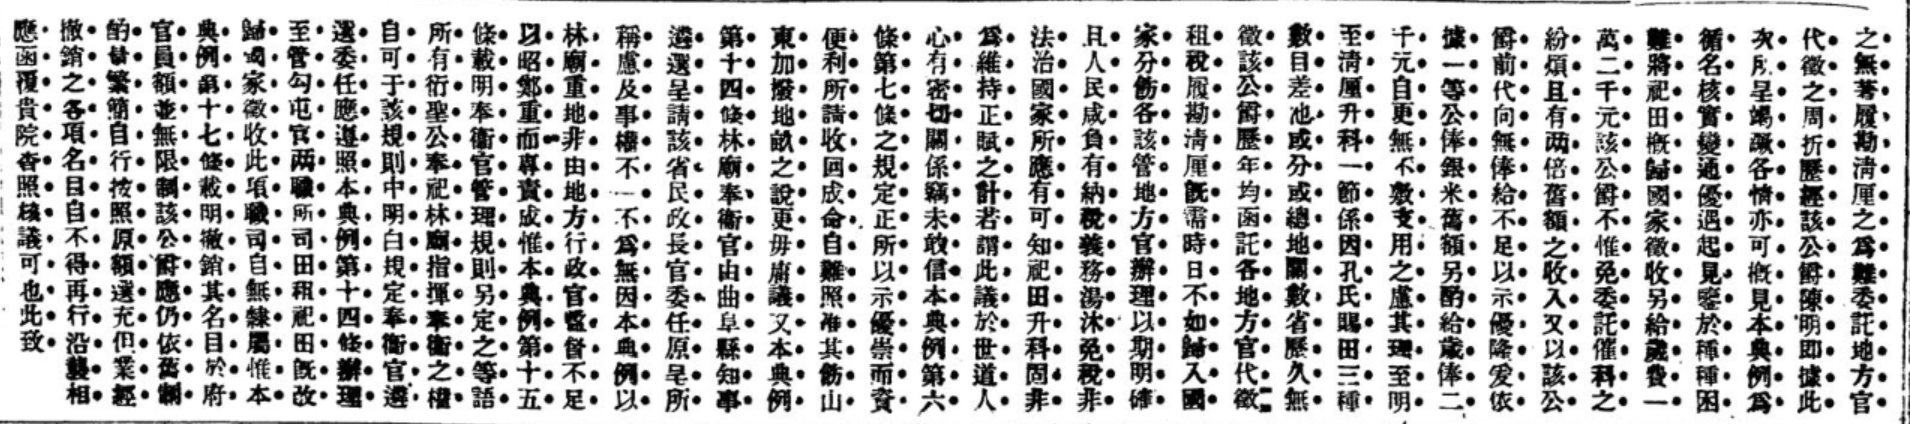 之無著履勘清厘之爲難委託地方官
代徵之周折歷經該公爵陳明卽據此
次所呈竭蹶各情亦可槪見本典例爲
循名核實變通優遇起見鑒於種種困
難將祀田槪歸國家徵收另給歲費一
萬二千元該公爵不惟免委託催科之
紛煩且有兩倍舊額之收入又以該公
爵前代向無俸給不足以示優隆爰依
據一等公俸銀米舊額另酌給歲俸二
千元自更無不敷支用之慮其理至明
至清厘升科一節係因孔氏賜田三種
數目差池或分或總地關數省歷久無
徵該公爵歷年均函託各地方官代徵
租稅履勘清厘旣需時日不如歸入國
家分飭各該管地方官辦理以期明確
且人民咸負有納稅義務湯沐免稅非
法治國家所應有可知祀田升科固非
爲維持正賦之計若謂此議於世道人
心有密切關係竊未敢信本典例第六
條第七條之規定正所以示優崇而資
便利所請收回成命自難照准其飭山
東加撥地畝之說更毋庸議又本典例
第十四條林廟奉衞官由曲阜縣知事
遴選呈請該省民政長官委任原呈所
稱慮及事權不一不爲無因本典例以
林廟重地非由地方行政官監督不足
以昭鄭重而專責成惟本典例第十五
條載明奉衞官管理規則另定之等語
所有衍聖公奉祀林廟指揮奉衞之權
自可于該規則中明白規定奉衞官遴
選委任應遵照本典例第十四條辦理
至管勾屯官兩職所司田租祀田旣改
歸國家徵收此項職司自無隸屬惟本
典例第十七條載明撤銷其名目於府
官員額並無限制該公爵應仍依舊制
酌量繁簡自行按照原額選充但業經
撤銷之各項名目自不得再行沿襲相
應函覆貴院查照核議可也此致